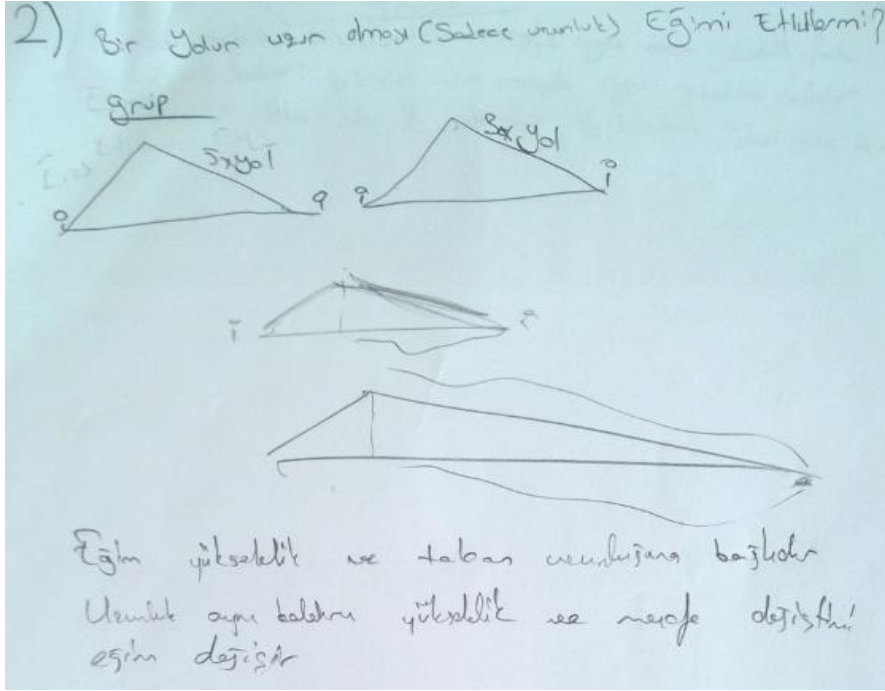 2) Bir Yolun uzun olması (Sadece uzunluk) Eğimi Etkilermi?
grup
5x yol
5x yol
Eğim yükseklik ve taban uzunluğuna bağlıdır
Uzunluk aynı yükseklik ve mesafe değiştimi
eğim değişir